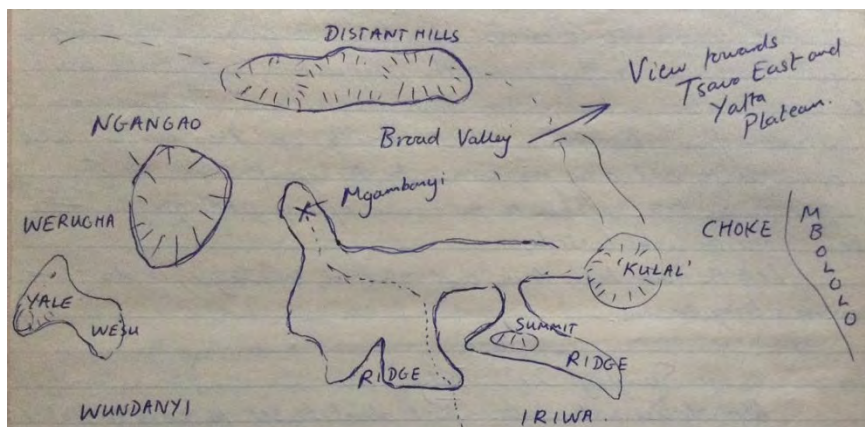 DISTANT HILLS
View towards
Tsavo East and
Yatta
Plateau.
NGANGAO
Broad Valley
Mgambonyi
WERUGHA
CHOKE
MBOLOLO
'KULAL'
YALE
WESU
SUMMIT
RIDGE
RIDGE
WUNDANYI
IRIWA.